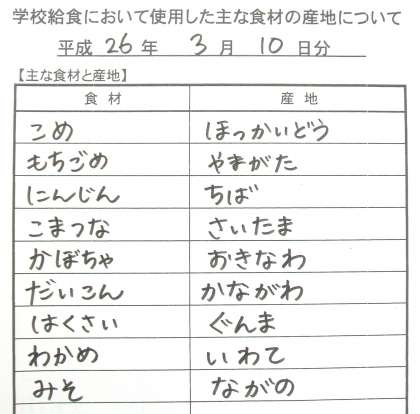 学校給食において使用した主な食材の産地について
平成 26 年 3 月 10 日分
【主な食材と産地】
食材 産地
こめ ほっかいどう
もちごめ やまがた
にんじん ちば
こまつな さいたま
かぼちゃ おきなわ
だいこん かながわ
はくさい ぐんま
わかめ いわて
みそ ながの